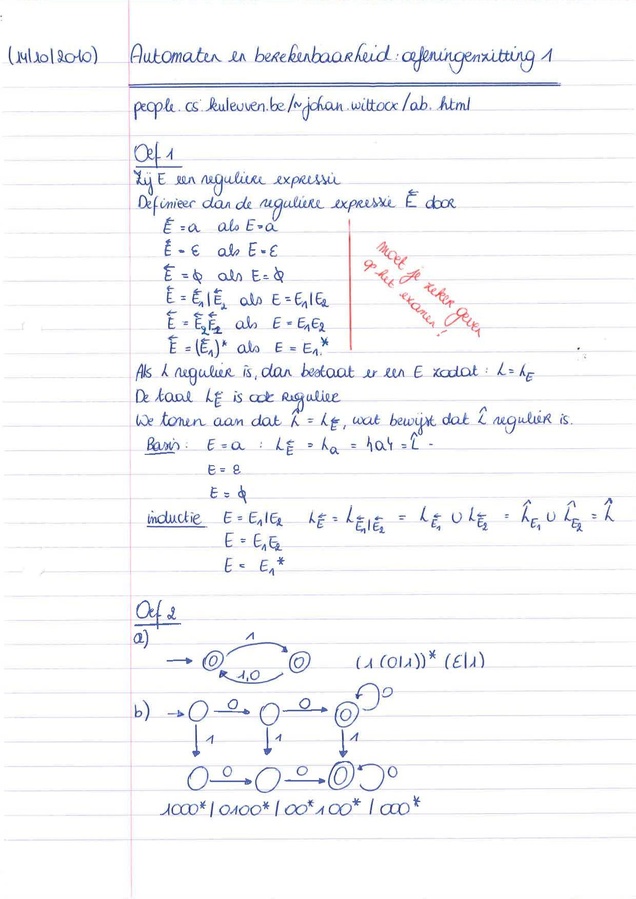 (14/10/2010) Automaten en berekenbaarheid: oefeningenzitting 1
people.cs.kuleuven.be/~johan.wittocx/ab.html
Oef 1
Zij E een reguliere expressie
Definieer dan de reguliere expressie Ē door
Ē = a als E = a
Ē = ε als E = ε
Ē = ϕ als E = ϕ
Ē = Ē₁|Ē₂ als E = E₁|E₂
Ē = Ē₂Ē₁ als E = E₁E₂
Ē = (Ē₁)* als E = E₁*
moet je zeker geven
op het examen!
Als L regulier is, dan bestaat er een E zodat : L = L_E
De taal L_Ē is ook regulier
We tonen aan dat L̂ = L_Ē, wat bewijst dat L̂ regulier is.
Basis: E = a : L_Ē = L_a = {a} = L̂
E = ε
E = ϕ
inductie E = E₁|E₂ L_Ē = L_Ē₁|Ē₂ = L_Ē₁ ∪ L_Ē₂ = L̂_E₁ ∪ L̂_E₂ = L̂
E = E₁E₂
E = E₁*
Oef 2
a)
1
1,0
(1(0|1))* (ε|1)
b) 0 0 0
1 1 1
0 0 0
1000*|0100*|00*100*|000*